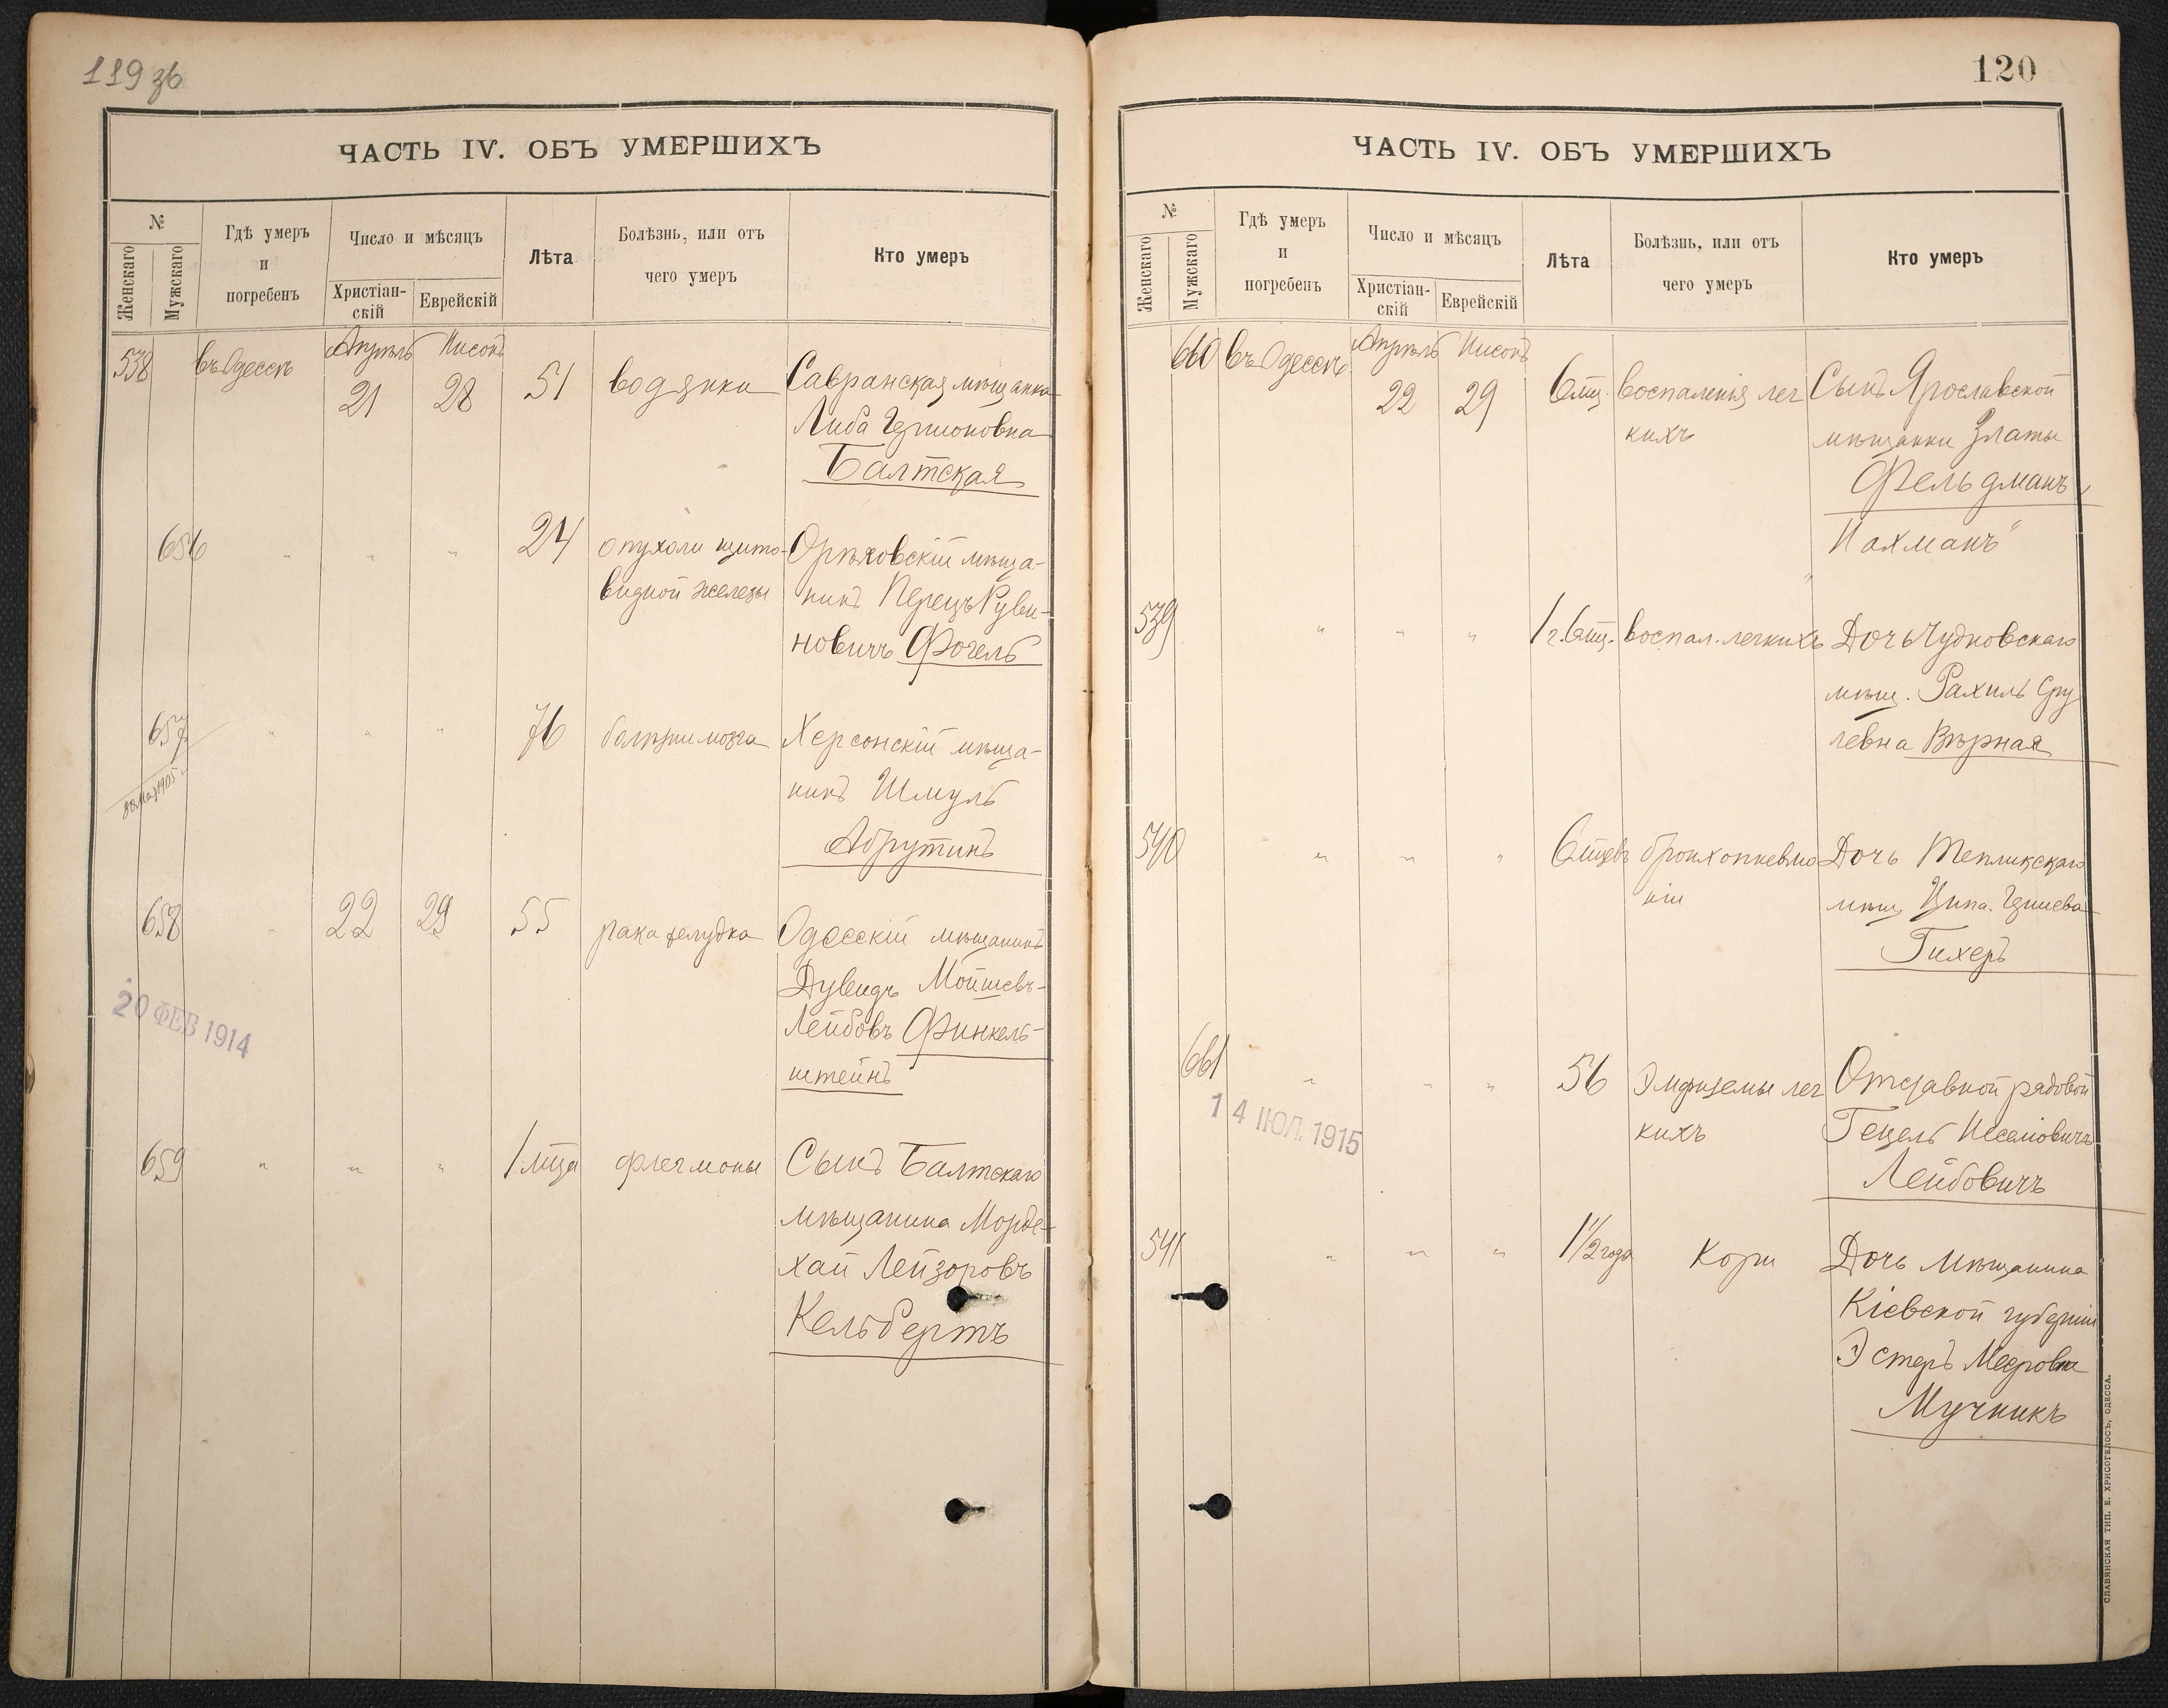 119 зв
ЧАСТЬ IV. ОБЪ УМЕРШИХЪ
№
Женскаго
Мужскаго
Гдѣ умеръ
и
погребенъ
Число и мѣсяцъ
Христіан-
скій
Еврейскій
Лѣта
Болѣзнь, или отъ
чего умеръ
Кто умеръ
538 въ Одессѣ Апрѣль Нисонъ
21 28 51 водянки Савранская мѣщанка
Либа
Балтская
656 " " " 24 опухоли щито- Орѣховскій мѣща-
видной железы нинъ Перецъ Руви-
новичъ Фогель
657 " " " 76 болѣзни мозга Херсонскій мѣща-
нинъ Шмуль
Абрутинъ
658 " 22 29 55 рака желудка Одесскій мѣщанинъ
Дувидъ Мойшевъ-
Лейбовъ Финкель-
штейнъ
20 ФЕВ 1914
659 " " " 1 мца флегмоны Сынъ Балтскаго
мѣщанина Морде-
хай Лейзоровъ
Кельбертъ
120
ЧАСТЬ IV. ОБЪ УМЕРШИХЪ
№
Женскаго
Мужскаго
Гдѣ умеръ
и
погребенъ
Число и мѣсяцъ
Христіан-
скій
Еврейскій
Лѣта
Болѣзнь, или отъ
чего умеръ
Кто умеръ
660 въ Одессѣ Апрѣль Нисонъ
22 29 6 мц. воспаленія лег Сынъ Ярославской
кихъ мѣщанки Златы
Фельдманъ,
Нахманъ"
539 " " " 1 г. 6 мц. воспал. легкихъ Дочь Чудновскаго
мѣщ. Рахиль Сру
левна Вѣрная
540 " " " 6 мцевъ бронхопневмо Дочь Тепликскаго
ніи мѣщ. Ципа
Гихеръ
661 " " " 56 Эмфиземы лег Отставной рядовой
кихъ Гецель
Лейбовичъ
14 ІЮЛ. 1915
541 " " " 1 1/2 года Кори Дочь мѣщанина
Кіевской губерніи
Эстеръ Мееровна
Мучникъ
СЛАВЯНСКАЯ ТИП. Е. ХРИСОГЕЛОСЪ, ОДЕССА.